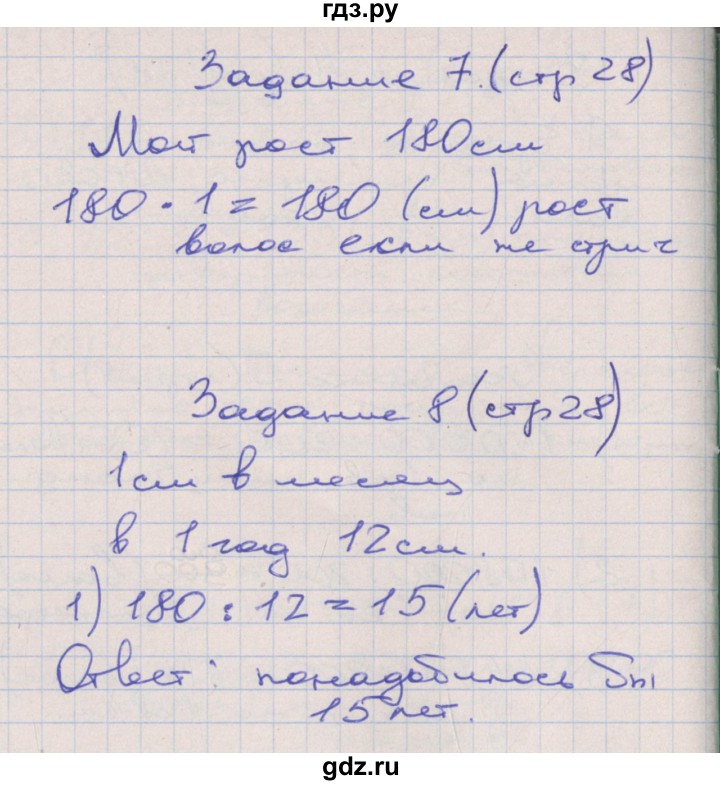 гдз.ру
Задание 7. (стр 28)
Мой рост 180см
180 · 1 = 180 (см) рост
волос если не стрич
Задание 8 (стр 28)
1см в месяц
в 1 год 12см.
1) 180 : 12 = 15 (лет)
Ответ: понадобилось бы
15 лет.
gdz.ru